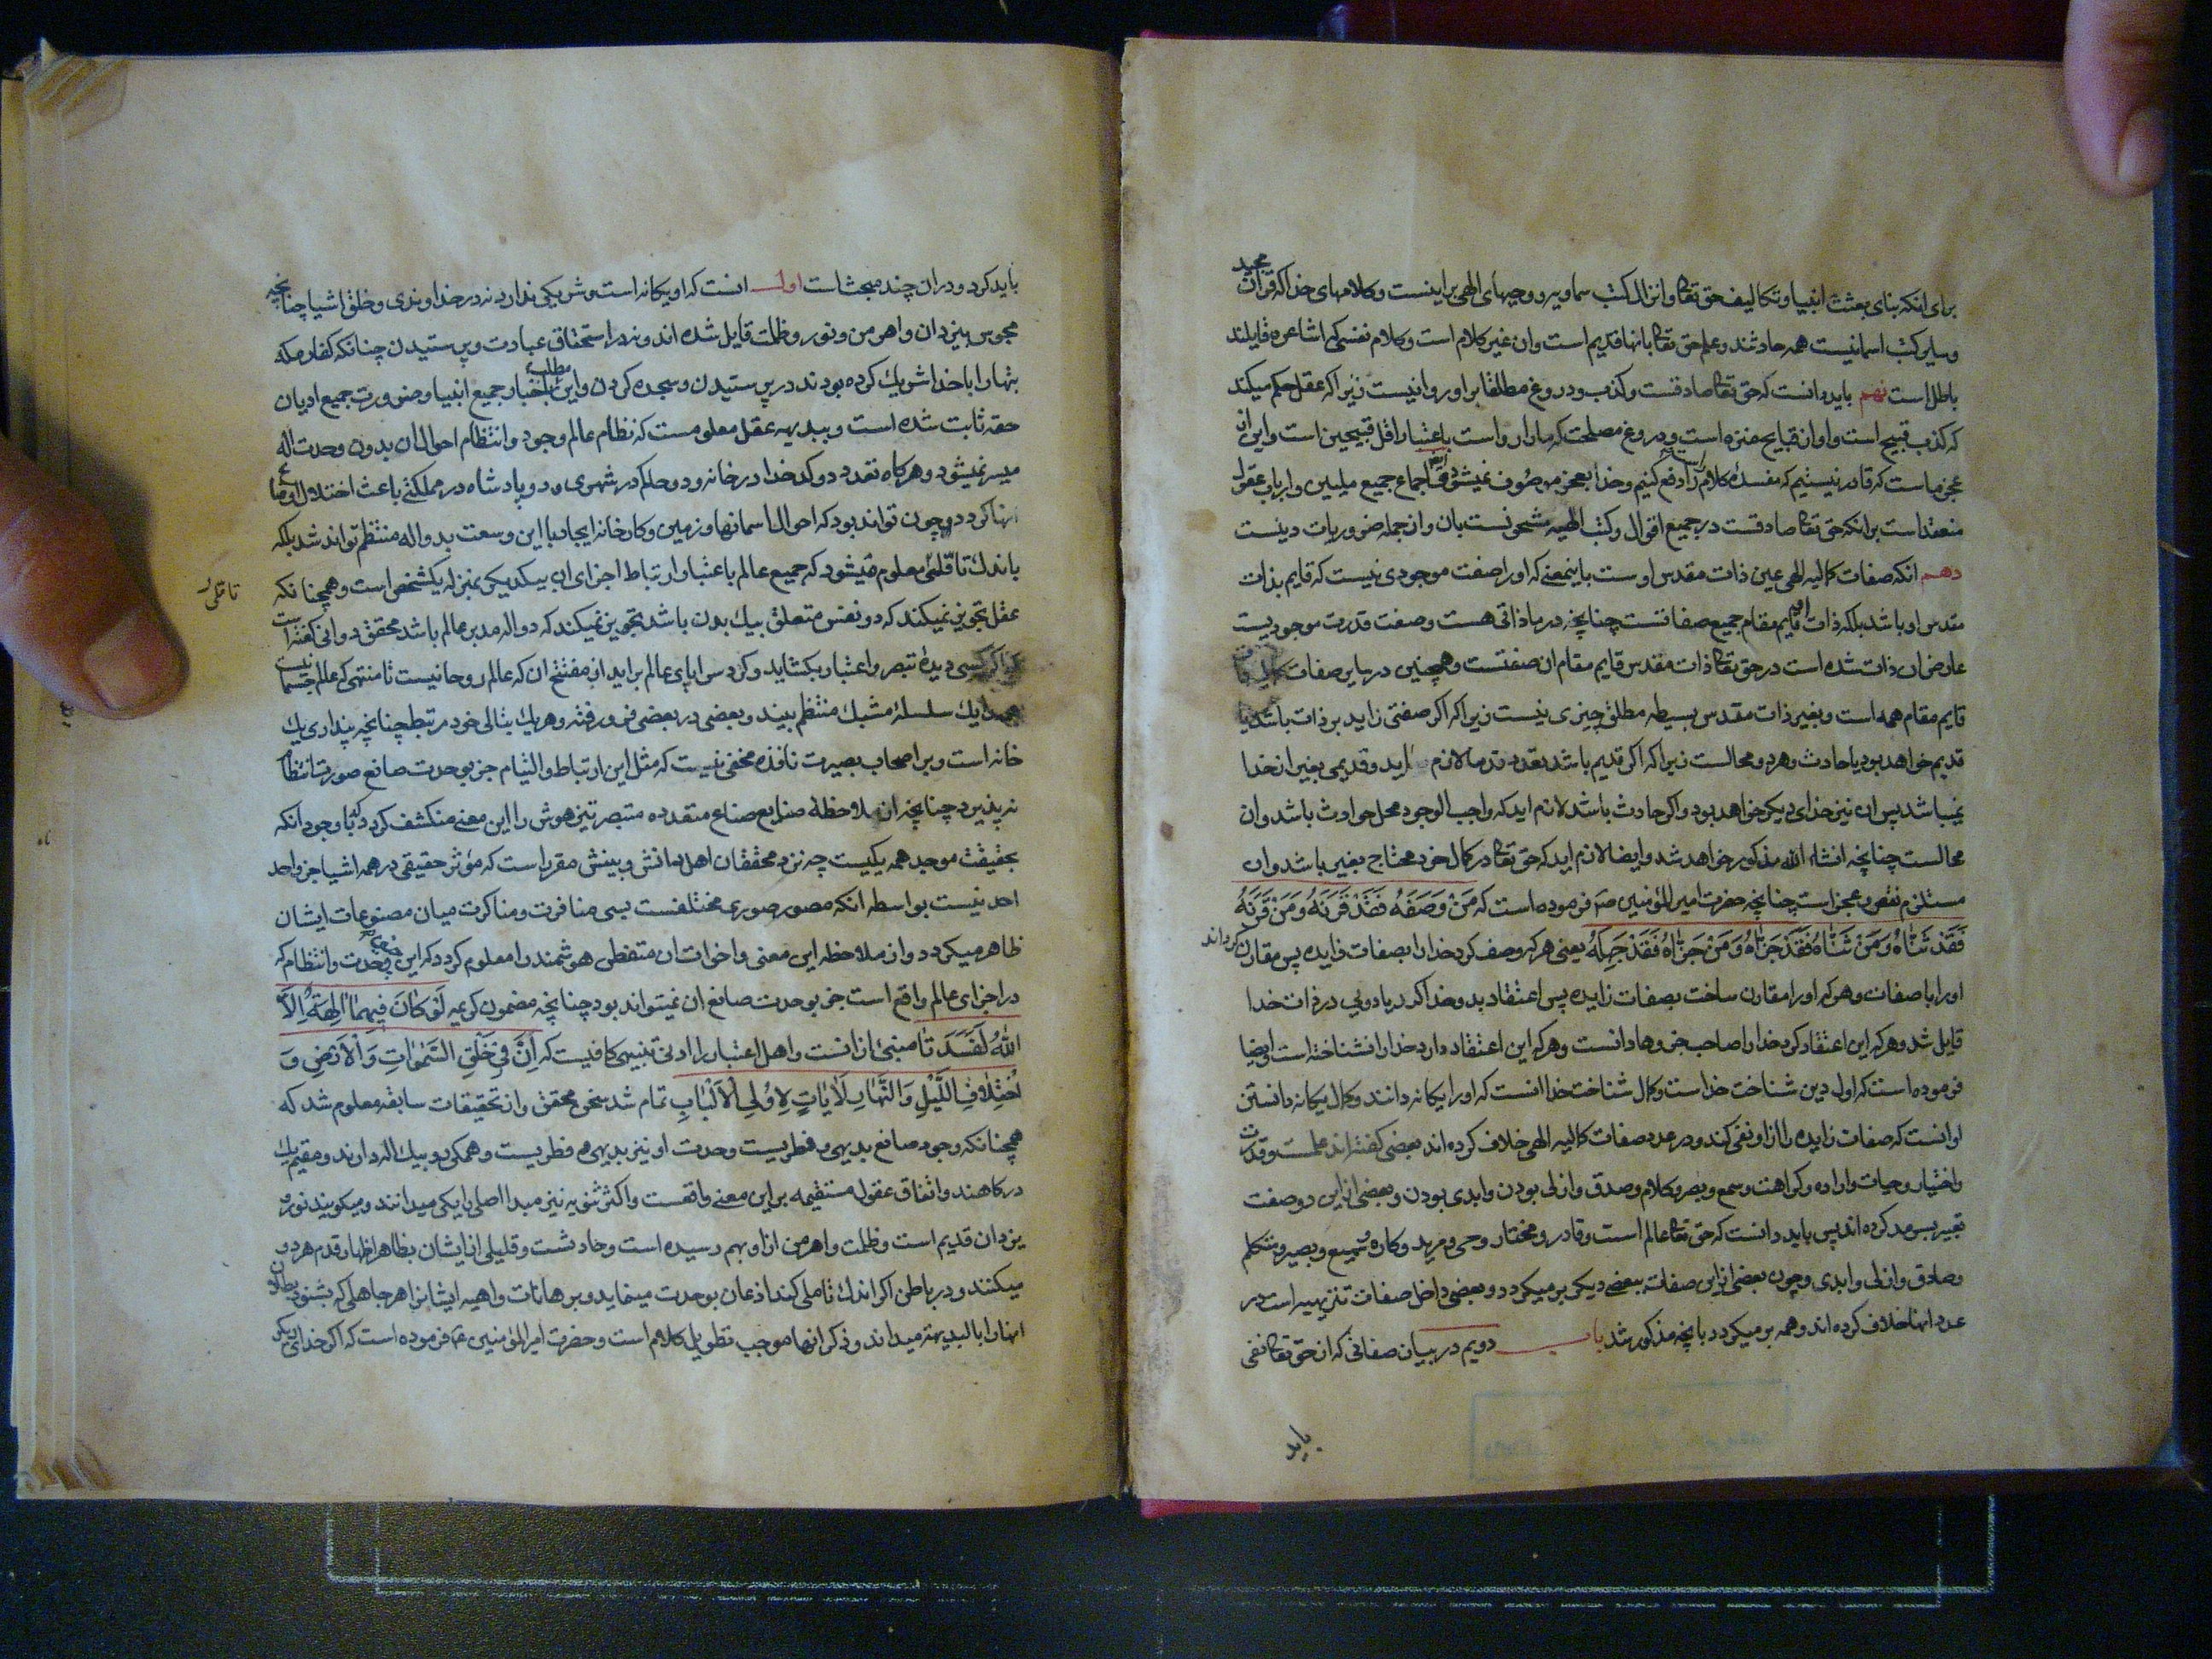 برای انکه بنای بعثت انبیا و تکالیف حق تعا و انزال کتب سماویه و وحیهای الهی براینست و کلامهای خدا که قران مجید
و سایر کتب اسمانیست همه حادثند و علم حق تعا بانها قدیم است و ان غیر کلام است و کلام نفسی که اشاعره قایلند
باطل است نهم باید دانست که حق تعا صادقست و کذب و دروغ مطلقا بر او روا نیست زیرا که عقل حکم میکند
که کذب قبیح است و او از قبایح منزه است و دروغ مصلحت که ما را رواست باعتبار اقل قبیحین است و این از
عجز ماست که قادر نیستیم که مفسده کلام راست را دفع کنیم و خدا بعجز موصوف نمیشود و اجماع جمیع ملیین و ارباب عقول
منعقد است بر انکه حق تعا صادقست در جمیع اقوال و کتب الهیه مشحونست بان و از جمله ضروریات دینست
دهم انکه صفات کمالیه الهی عین ذات مقدس اوست باینمعنی که او را صفت موجودی نیست که قایم بذات
مقدس او باشد بلکه ذات او قایم مقام جمیع صفاتست چنانچه در ما ذاتی هست و صفت قدرت موجودیست
عارض ان ذات شده است در حق تعا ذات مقدس قایم مقام ان صفتست و همچنین در سایر صفات
قایم مقام همه است و بغیر ذات مقدس بسیطه مطلق چیزی نیست زیرا که اکر صفتی زاید بر ذات باشد یا
قدیم خواهد بود یا حادث و هر دو محالست زیرا که اکر قدیم باشد تعدد قدما لازم اید و قدیمی بغیر از خدا
نمیباشد پس ان نیز خدای دیکر خواهد بود و اکر حادث باشد لازم اید که واجب الوجود محل حوادث باشد و ان
محالست چنانچه انشاء الله مذکور خواهد شد و ایضا لازم اید که حق تعا در کمال خود محتاج بغیر باشد و ان
مستلزم نقص و عجز است چنانچه حضرت امیر المؤمنین ص فرموده است که مَنْ وَصَفَهُ فَقَدْ قَرَنَهُ وَمَنْ قَرَنَهُ
فَقَدْ ثَنّاهُ وَمَنْ ثَنّاهُ فَقَدْ جَزّاهُ وَمَنْ جَزّاهُ فَقَدْ جَهِلَهُ یعنی هر که وصف کرد خدا را بصفات زایده پس مقارن کرداند
او را با صفات و هر که او را مقارن ساخت بصفات زایده پس اعتقاد بدو خدا کرد یا دویی در ذات خدا
قایل شد و هر که این اعتقاد کرد خدا را صاحب جزوها دانست و هر که این اعتقاد دارد خدا را نشناخته است و ایضا
فرموده است که اول دین شناخت خداست و کمال شناخت خدا انست که او را یکانه دانند و کمال یکانه دانستن
او انست که صفات زایده را از او نفی کند و در عدد صفات کمالیه الهی خلاف کرده اند بعضی کفته اند علمست و قدرت
و اختیار و حیات و اراده و کراهت و سمع و بصر و کلام و صدق و ازلی بودن و ابدی بودن و بعضی از این دو صفت
تعبیر بسرمد کرده اند پس باید دانست که حق تعا عالم است و قادر و مختار و حی و مرید و کاره و سمیع و بصیر و متکلم
و صادق و ازلی و ابدی و چون بعضی از این صفات ببعضی دیکر بر میکردد و بعضی داخل صفات تنزیهیه است در
عدد انها خلاف کرده اند و همه بر میکردد بانچه مذکور شد باب دویم در بیان صفاتی که از حق تعا نفی
باید
باید کرد و دران چند مبحث است اول انست که او یکانه است و شریکی ندارد نه در خداوندی و خلق اشیا چنانچه
مجوس بیزدان و اهرمن و نور و ظلمت قایل شده اند و نه در استحقاق عبادت و پرستیدن چنانکه کفار مکه
بتهارا با خدا شریک کرده بودند در پرستیدن و سجده کردن و این مطلب باخبار جمیع انبیا و ضرورت جمیع ادیان
حقه ثابت شده است و ببدیهه عقل معلومست که نظام عالم وجود و انتظام احوال ان بدون وحدت اله
میسر نمیشود و هرکاه تعدد دو کدخدا در خانه و دو حاکم در شهری و دو پادشاه در مملکتی باعث اختلال اوضاع
انها کردد چون تواند بود که احوال اسمانها و زمین و کارخانه ایجاد با این وسعت بدو اله منتظم تواند شد بلکه
باندک تاملی معلوم میشود که جمیع عالم باعتبار ارتباط اجزای ان بیکدیکر بمنزله یکشخص است و همچنانکه
تاملی
عقل تجویز نمیکند که دو نفس متعلق بیک بدن باشد تجویز نمیکند که دو اله مدبر عالم باشد محقق دوانی کفته است
که اکر کسی دیده تبصر و اعتبار بکشاید و کرد سراپای عالم براید از مفتتح ان که عالم روحانیست تا منتهی که عالم جسمانیست
همه را یک سلسله مشبک منتظم بیند و بعضی در بعضی فرو رفته و هر یک بتالی خود مرتبط چنانچه پنداری یک
خانه است و بر اصحاب بصیرت نافذه مخفی نیست که مثل این ارتباط و التیام جز بوحدت صانع صورت انتظام
نه پذیرد چنانچه از ملاحظه صنایع صناع متعدده متبصر تیز هوش را این معنی منکشف کردد که با وجود انکه
بحقیقت موجد همه یکیست چه نزد محققان اهل دانش و بینش مقرر است که مؤثر حقیقی در همه اشیا جز واحد
احد نیست بواسطه انکه مصور صوری مختلفست بسی منافرت و مناکرت میان مصنوعات ایشان
ظاهر میکردد و از ملاحظه این معنی و اخوات ان متفطن هوشمند را معلوم کردد که این وحدت و انتظام که
در اجزای عالم واقع است جز بوحدت صانع ان نمیتواند بود چنانچه مضمون کریمه لَوْ کانَ فیهِما الِهَةٌ اِلاَّ
اللهُ لَفَسَدَتا مبنی از انست و اهل اعتبار را ادنی تنبیهی کافیست که اِنَّ فی خَلْقِ السَّمٰواتِ وَالْاَرْضِ وَ
اخْتِلافِ اللَّیْلِ وَالنَّهارِ لَایاتٍ لِاُولِی الْاَلْبابِ تمام شد سخن محقق و از تحقیقات سابقه معلوم شد که
همچنانکه وجود صانع بدیهی و فطریست وحدت او نیز بدیهی و فطریست و همکی رو بیک اله دارند و مقیم یک
درکاهند و اتفاق عقول مستقیمه بر این معنی واقعست و اکثر ثنویه نیز مبدا اصلی را یکی میدانند و میکویند نور و
یزدان قدیم است و ظلمت و اهرمن از او بهم رسیده است و حادثست و قلیلی از ایشان بظاهر اظهار قدم هر دو
میکنند و در باطن اکر اندک تاملی کنند اذعان بوحدت مینماید و برهانات واهیه ایشانرا هر جاهلی که بشنود بطلان
انهارا بالبدیهه میداند و ذکر انها موجب تطویل کلام است و حضرت امیر المؤمنین ع فرموده است که اکر خدای دیکر